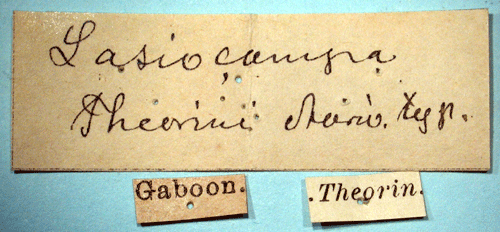 Lasiocampa
Theorini Auriv. typ.
Gaboon.
.Theorin.